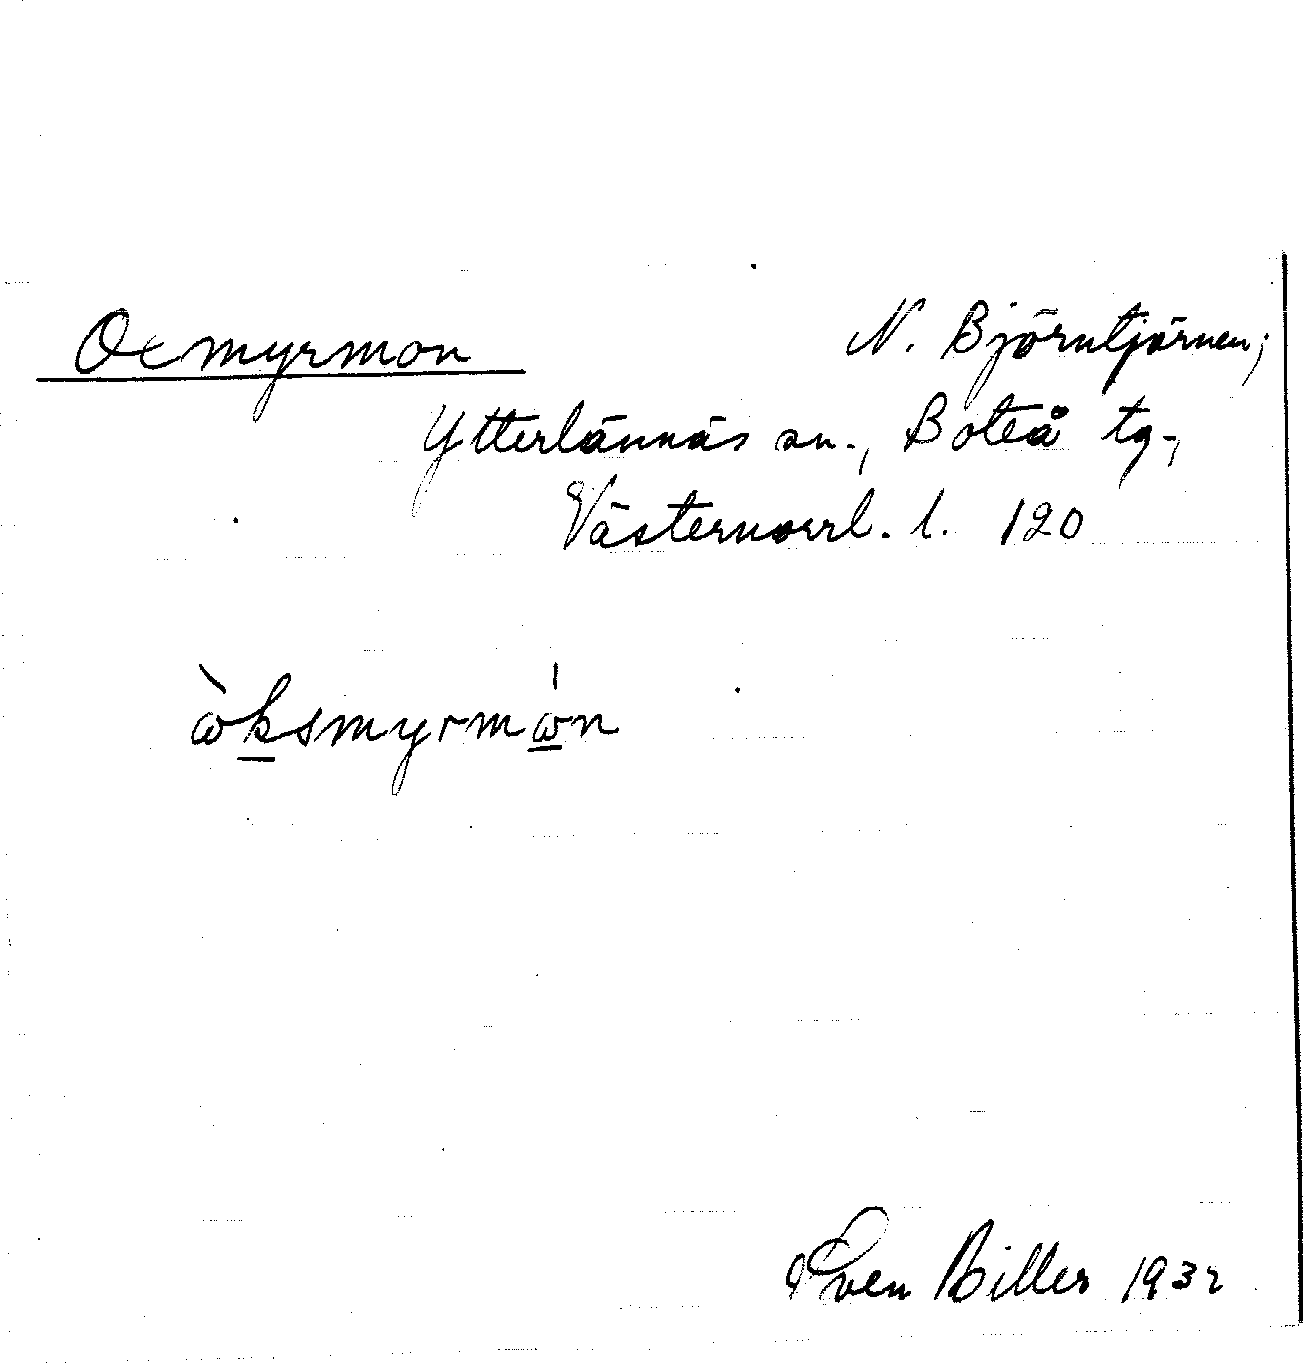 Oxmyrmon
N. Björntjärnen;
Ytterlännäs sn., Boteå tg.,
Västernorrl. l. 120
ὼksmyrmώn
Sven Biller 1932